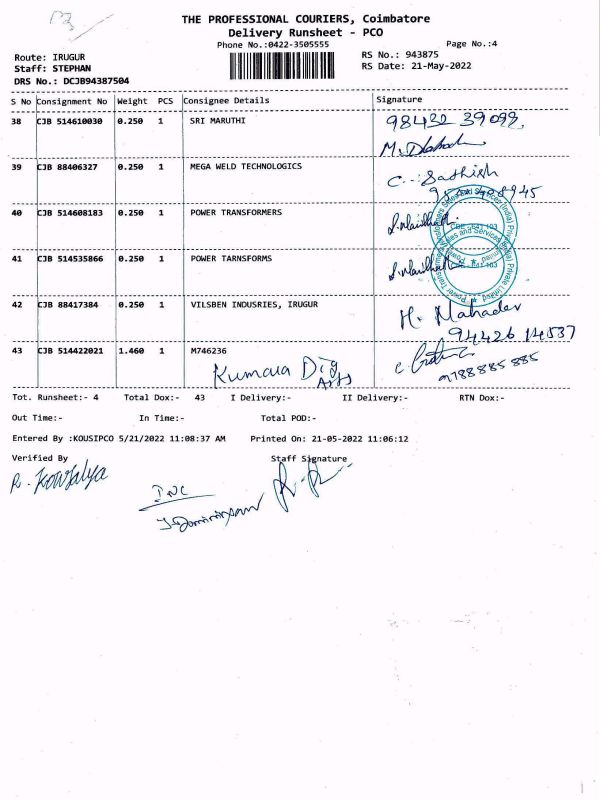 THE PROFESSIONAL COURIERS, Coimbatore
Delivery Runsheet - PCO
Phone No.:0422-3505555
Page No.:4
Route: IRUGUR
RS No.: 943875
Staff: STEPHAN
RS Date: 21-May-2022
DRS No.: DCJB94387504
S No Consignment No Weight PCS Consignee Details Signature
38 CJB 514610030 0.250 1 SRI MARUTHI 98432 39099
39 CJB 88406327 0.250 1 MEGA WELD TECHNOLOGICS C. Sathish
40 CJB 514608183 0.250 1 POWER TRANSFORMERS
41 CJB 514535866 0.250 1 POWER TARNSFORMS
42 CJB 88417384 0.250 1 VILSBEN INDUSRIES, IRUGUR M. Mahadev
94426 14537
43 CJB 514422021 1.460 1 M746236
Kumara Dig
Arts
9788885885
Tot. Runsheet:- 4 Total Dox:- 43 I Delivery:- II Delivery:- RTN Dox:-
Out Time:- In Time:- Total POD:-
Entered By :KOUSIPCO 5/21/2022 11:08:37 AM Printed On: 21-05-2022 11:06:12
Verified By Staff Signature
R. Kowsalya